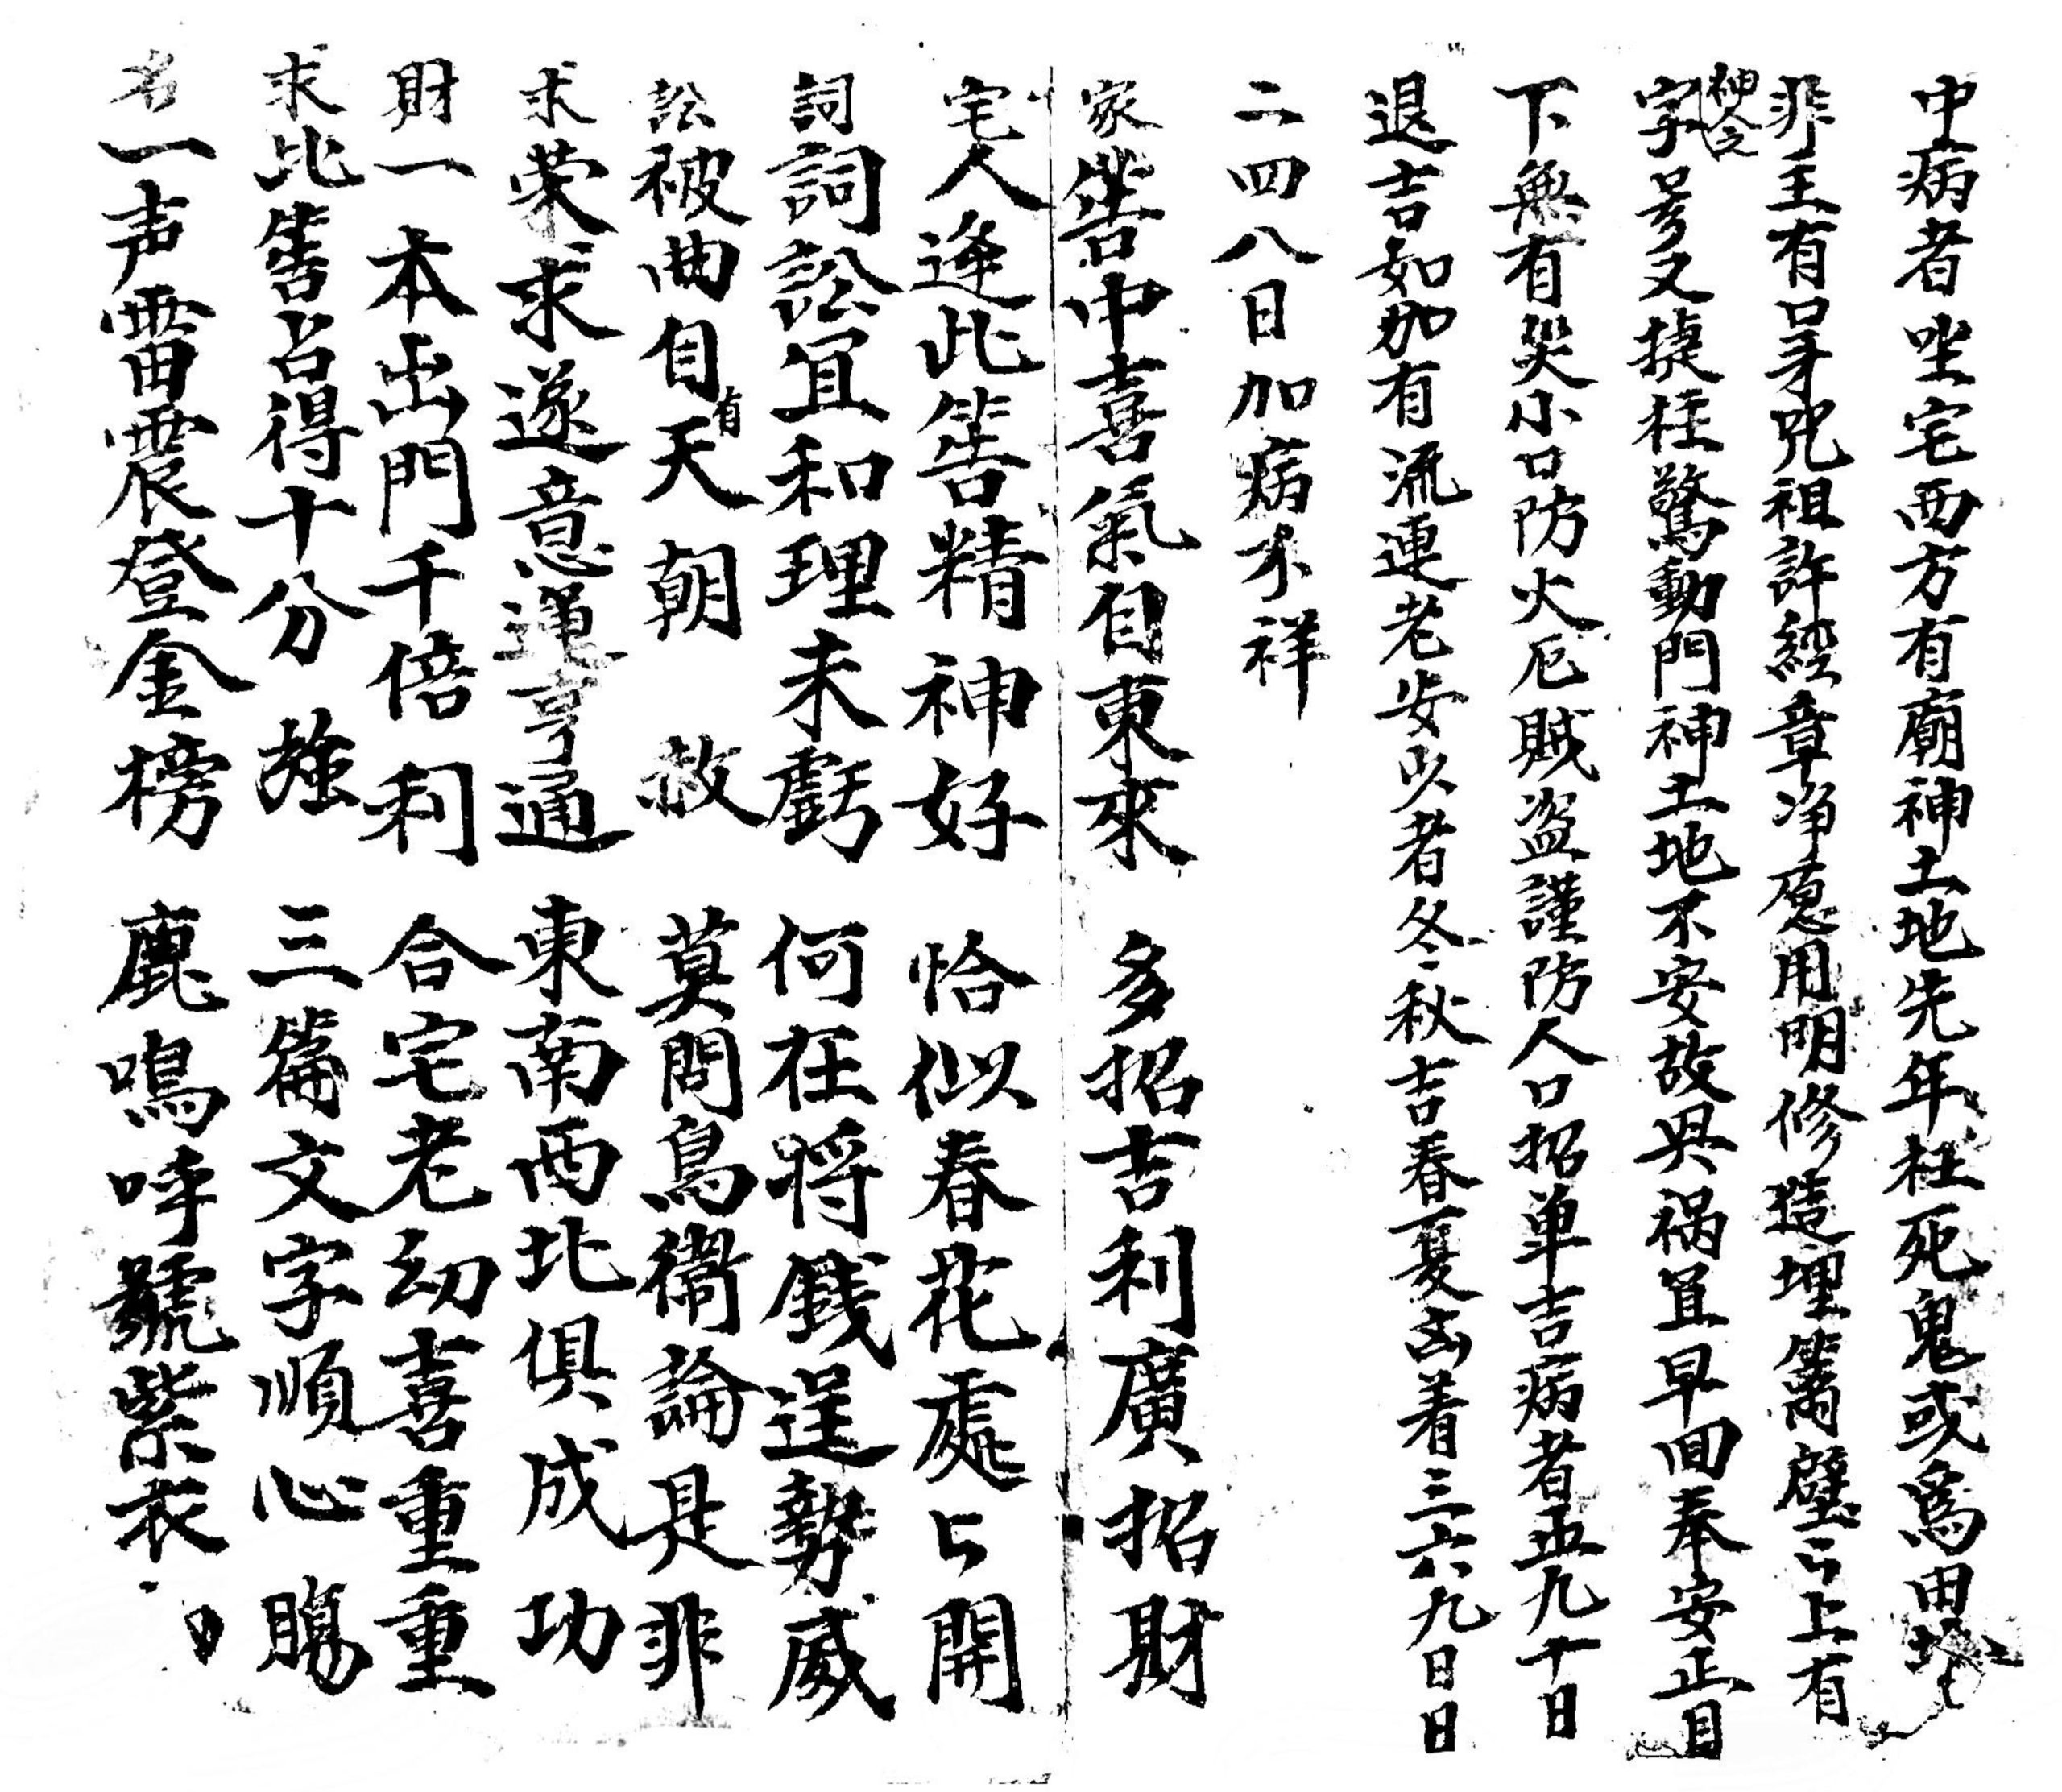 中病者坐宅西方有廟神土地先年枉死鬼或為田地
非主有口牙咒祖許經章净愿用明修造埋篱壁云上有
神令之
字号又捷往驚動門神土地不安故具祸宜早回奉安正目
下無有災小口防火厄賊盗謹防人口招单吉病者五九十日
退吉如加有流連老安少者冬秋吉春夏凶着三六九日日
二四八日加病不祥
家筶中喜氣自東來 多招吉利廣招財
宅人逢此筶精神好 恰似春花處々開
詞詞訟宜和理未虧 何在将錢逞勢威
訟被曲自有天朝赦 莫問鳥衙論是非
求荣求遂意運亨通 東南西北俱成功
財一本出門千倍利 合宅老幼喜重重
求比筶占得十分強 三篇文字順心腸
名一声雷震登金榜 鹿鳴呼號紫衣